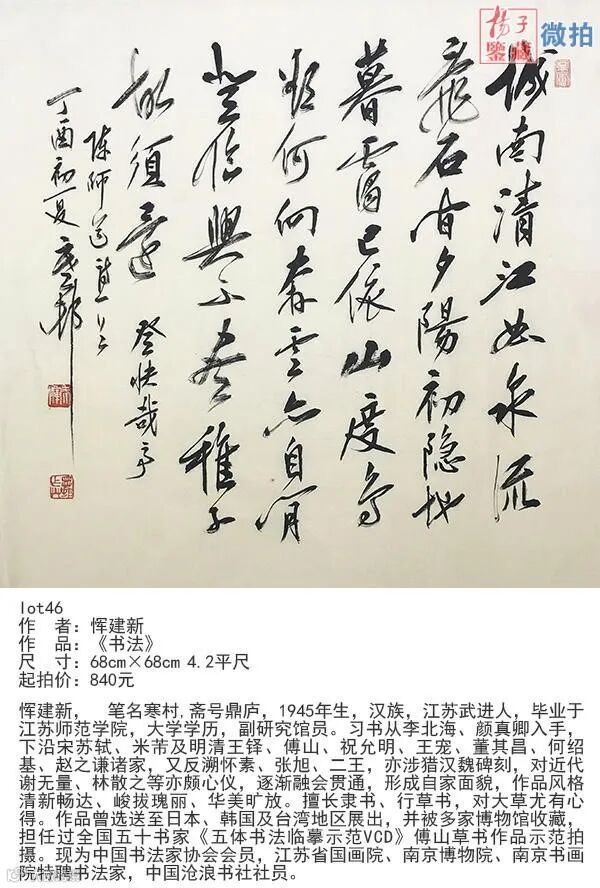 楊子
鉴藏
微拍
城南清江曲泉流
乱石间夕阳初隐地
暮霭已依山度鸟
欲何向奔云亦自闲
登临興不尽稚子
故须還 登快哉亭
陈师道诗一首
丁酉初夏寒邨
lot46
作 者：恽建新
作 品：《书法》
尺 寸：68cm×68cm 4.2平尺
起拍价：840元
恽建新， 笔名寒村,斋号鼎庐，1945年生，汉族，江苏武进人，毕业于
江苏师范学院，大学学历，副研究馆员。习书从李北海、颜真卿入手，
下沿宋苏轼、米芾及明清王铎、傅山、祝允明、王宠、董其昌、何绍
基、赵之谦诸家，又反溯怀素、张旭、二王，亦涉猎汉魏碑刻，对近代
谢无量、林散之等亦颇心仪，逐渐融会贯通，形成自家面貌，作品风格
清新畅达、峻拔瑰丽、华美旷放。擅长隶书、行草书，对大草尤有心
得。作品曾选送至日本、韩国及台湾地区展出，并被多家博物馆收藏，
担任过全国五十书家《五体书法临摹示范VCD》傅山草书作品示范拍
摄。现为中国书法家协会会员，江苏省国画院、南京博物院、南京书画
院特聘书法家，中国沧浪书社社员。